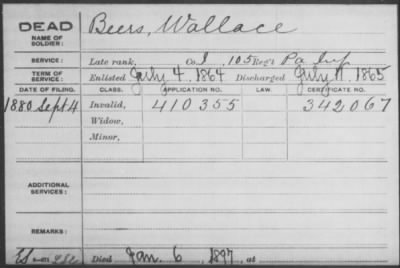 DEAD Beers, Wallace
NAME OF SOLDIER:
SERVICE: Late rank, Co. I, 105 Reg't Pa Inf
TERM OF SERVICE: Enlisted July 4, 1864 Discharged July 11, 1865
DATE OF FILING. CLASS. APPLICATION NO. LAW. CERTIFICATE NO.
1880 Sept 4 Invalid, 410355 342067
Widow,
Minor,
ADDITIONAL SERVICES:
REMARKS:
Died Jan. 6, 1897, at